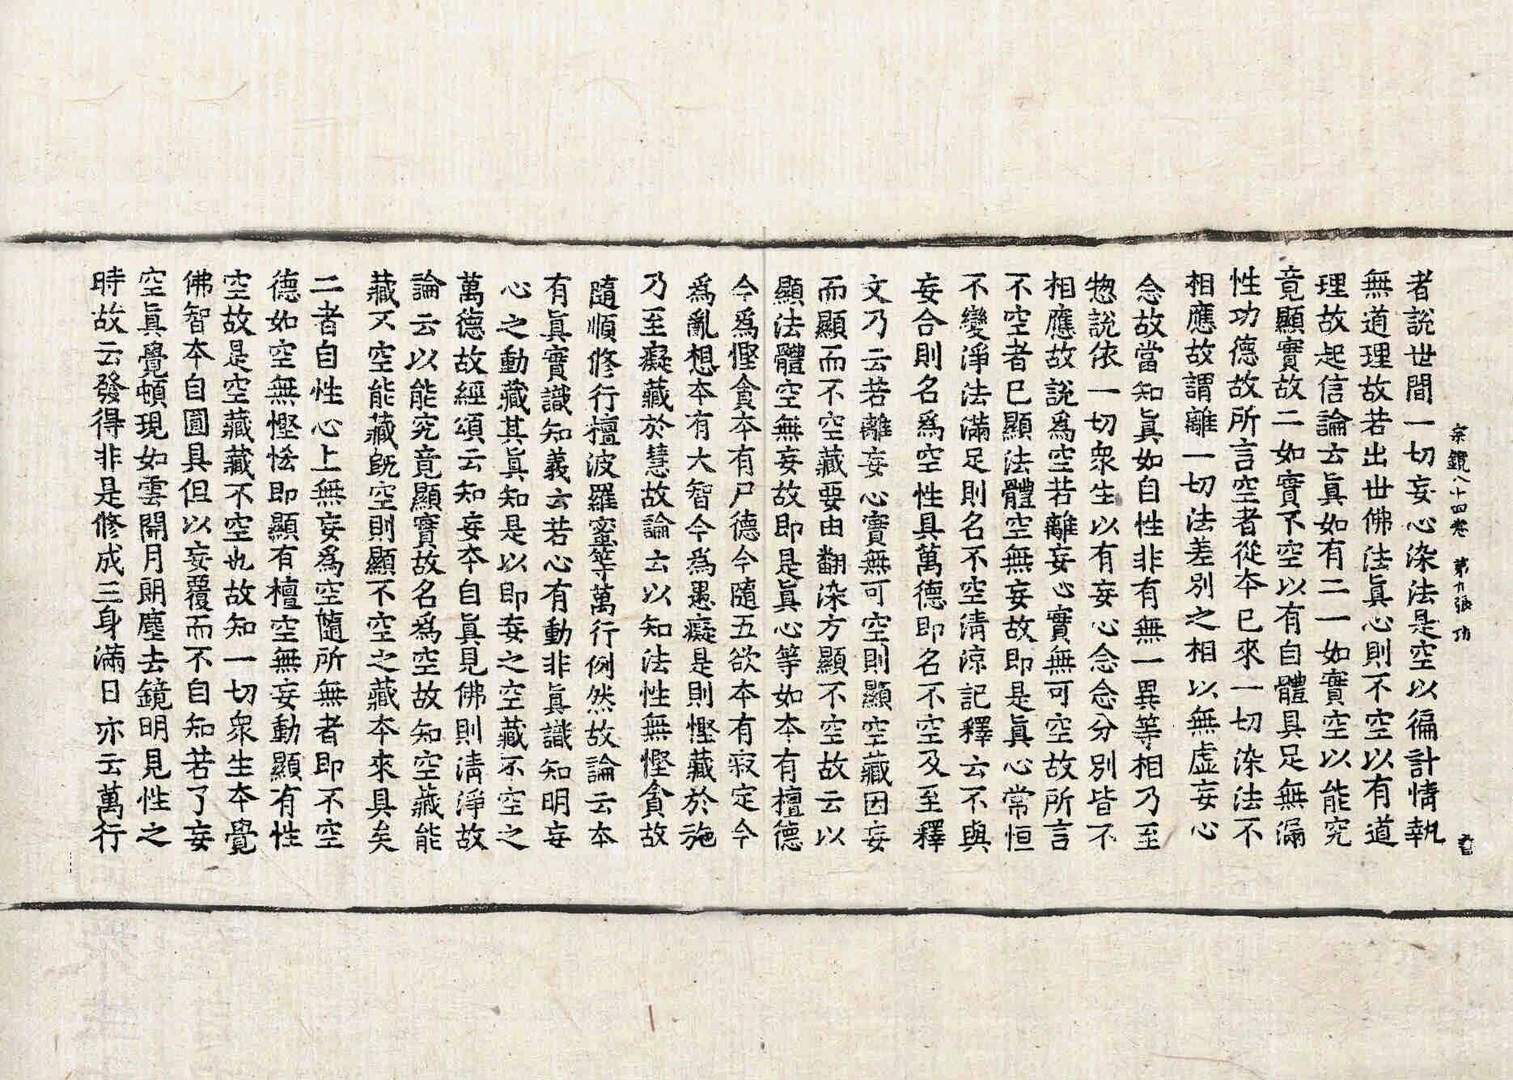 宗鏡八十四卷 第九張 功
者說世間一切妄心染法是空以徧計情執
無道理故若出世佛法眞心則不空以有道
理故起信論云眞如有二一如實空以能究
竟顯實故二如實不空以有自體具足無漏
性功德故所言空者從本已來一切染法不
相應故謂離一切法差別之相以無虛妄心
念故當知眞如自性非有無一異等相乃至
惣說依一切衆生以有妄心念念分別皆不
相應故說爲空若離妄心實無可空故所言
不空者已顯法體空無妄故即是眞心常恒
不變淨法滿足則名不空淸涼記釋云不與
妄合則名爲空性具萬德即名不空及至釋
文乃云若離妄心實無可空則顯空藏因妄
而顯而不空藏要由翻染方顯不空故云以
顯法體空無妄故即是眞心等如本有檀德
今爲慳貪本有尸德今隨五欲本有寂定今
爲亂想本有大智今爲愚癡是則慳藏於施
乃至癡藏於慧故論云以知法性無慳貪故
隨順修行檀波羅蜜等萬行例然故論云本
有眞實識知義云若心有動非眞識知明妄
心之動藏其眞知是以即妄之空藏不空之
萬德故經頌云知妄本自眞見佛則淸淨故
論云以能究竟顯實故名爲空故知空藏能
藏不空能藏旣空則顯不空之藏本來具矣
二者自性心上無妄爲空隨所無者即不空
德如空無慳恡即顯有檀空無妄動顯有性
空故是空藏藏不空也故知一切衆生本覺
佛智本自圓具但以妄覆而不自知若了妄
空眞覺頓現如雲開月朗塵去鏡明見性之
時故云發得非是修成三身滿日亦云萬行